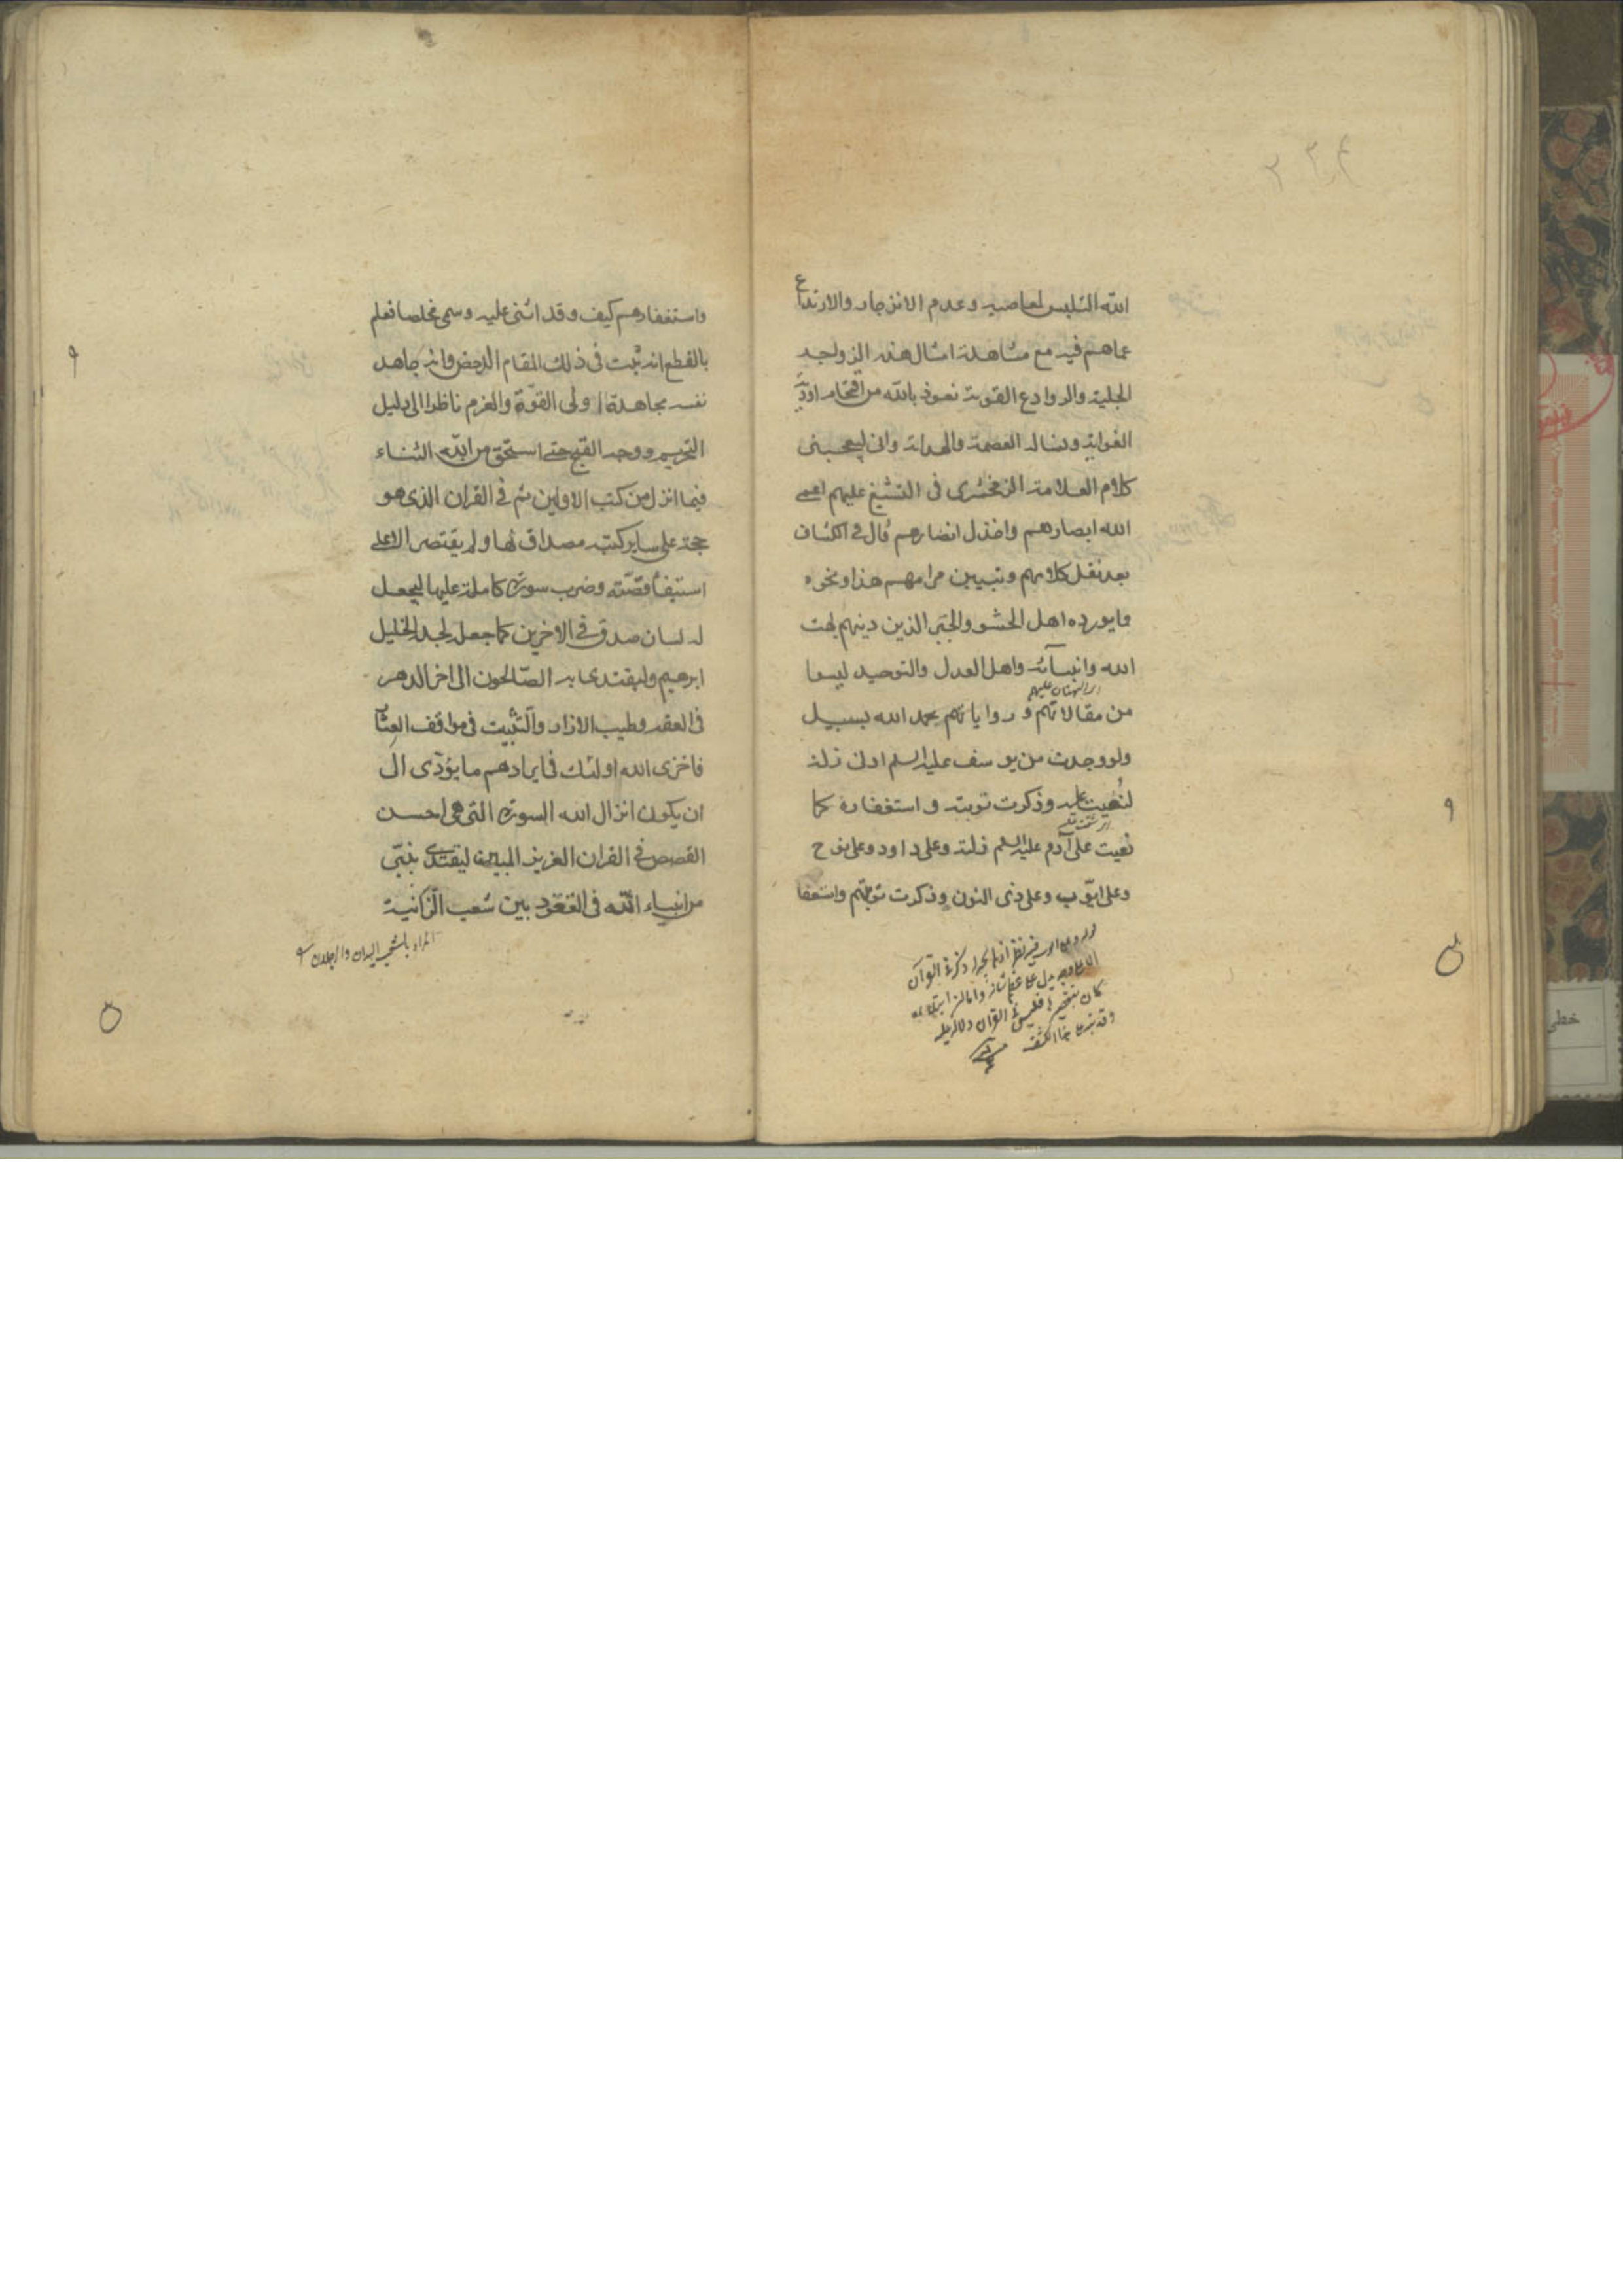 الله التلبس لمعاصيه وعدم الانزجار والارتداع
عماهم فيه مع مشاهدة امثال هذه الزواجر
الجلية والروادع القوية نعوذ بالله من اقتحام اودية
الغواية ونساله العصمة والهداية وانى ليعجبنى
كلام العلامة الزمخشرى فى التشنيع عليهم اعمى
الله ابصارهم واخذل انصارهم قال فى الكشاف
بعد نقل كلامهم وتبيين مرامهم هذا ونحوه
مايورده اهل الحشو والجبر الذين دينهم بهت
الله وانبيآئه واهل العدل والتوحيد ليسوا
اى البهتان عليهم
من مقالاتهم وروایاتهم بحمد الله بسبيل
ولو وجدت من يوسف عليه السلم ادنى زلة
لنعيت عليه وذكرت توبته واستغفاره كما
نعيت على آدم عليه السلم زلته وعلى داود وعلى نوح
وعلى ايّوب وعلى ذى النون وذكرت توبتهم واستغفا
واستغفارهم كيف وقد اثنى عليه وسمى مخلصا فعلم
بالقطع انه ثبت فى ذلك المقام الدحض وانه جاهد
نفسه مجاهدة اولى القوّة والعزم ناظرا الى دليل
التحريم ووجه القبح حتى استحق من الله الثناء
فيما انزل من كتب الاولين ثم فى القران الذى هو
حجة على ساير كتبه مصداق لها ولم يقتصر الا على
استيفا قصّته وضرب سورة كاملة عليها ليجعل
له لسان صدق فى الاخرين كما جعل لجده الخليل
ابرهيم وليقتدى به الصّالحون الى اخر الدهر
فى العفه وطيب الازار والتّثبيت فى مواقف العثار
فاخزى الله اولئك فى ايرادهم ما يؤدّى الى
ان يكون انزال الله السورة التى هى احسن
القصص فى القران العزيز المبين ليقتدى بنبّى
من انبياء الله فى القعود بين شعب الزّانية
المراد بالشعب اليدان والرجلان